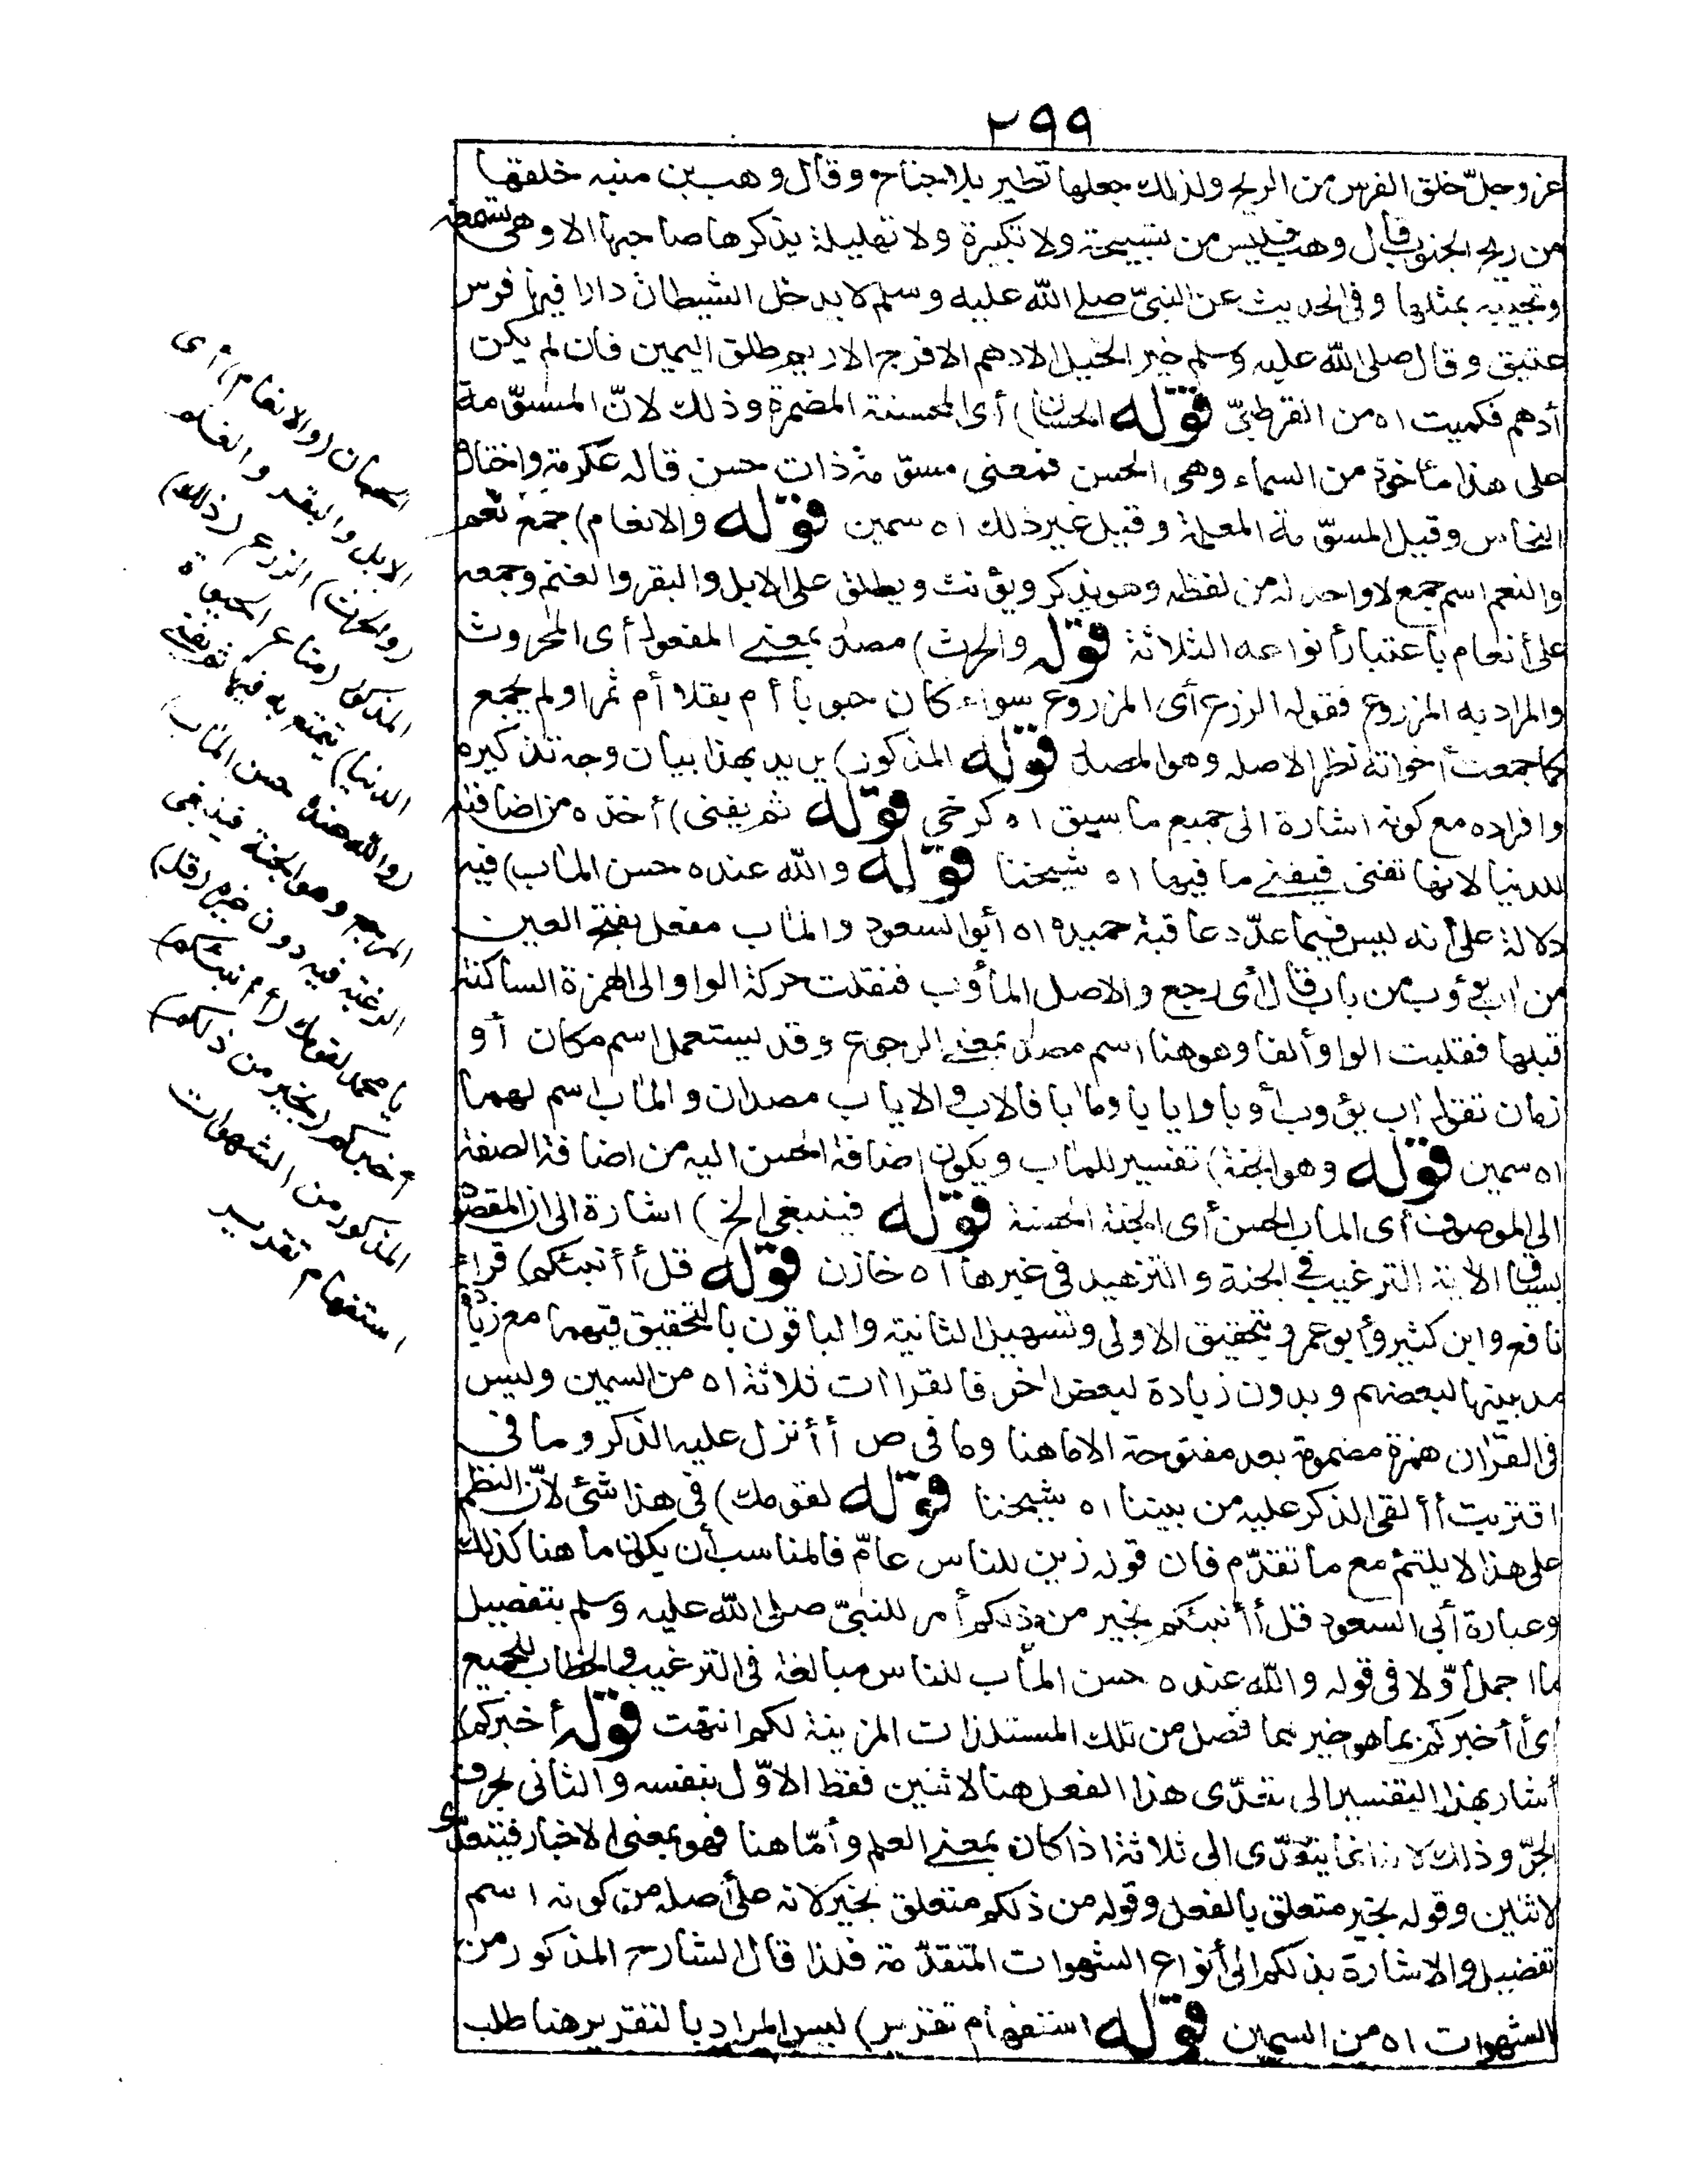 ٢٩٩
عز وجل خلق الفرس من الريح ولذلك جعلها تطير بلا جناح وقال وهب بن منبه خلقها
من ريح الجنوب قال وهب فليس من تسبيحة ولا تكبيرة ولا تهليلة يذكرها صاحبها الا وهي تسمعه
وتجيبه بمثلها وفى الحديث عن النبىّ صلى الله عليه وسلم لا يدخل الشيطان دارا فيها فرس
عتيق وقال صلى الله عليه وسلم خير الخيل الادهم الاقرح الارثم طلق اليمين فان لم يكن
أدهم فكميت اه من القرطبىّ قوله الحسان) أى المحسنة المضمرة وذلك لانّ المسوّمة
على هذا مأخوذ من السماء وهى الحسن فمعنى مسوّمة ذات حسن قاله عكرمة واختاره
النحاس وقيل المسوّمة المعلمة وقيل غير ذلك اه سمين قوله والانعام) جمع نعم
والنعم اسم جمع لا واحد له من لفظه وهو يذكر ويؤنث ويطلق على الابل والبقر والغنم وجمعه
على أنعام باعتبار أنواعه الثلاثة قوله والحرث) مصدر بمعنى المفعول أى المحروث
والمراد به المزروع فقوله الزرع أى المزروع سواء كان حبوبا أم بقلا أم ثمرا ولم يجمع
كما جمعت أخواته نظرا لاصله وهو المصدر قوله المذكور) يريد بهذا بيان وجه تذكيره
وافراده مع كونه اشارة الى جميع ما سبق اه كرخى قوله ثم يفنى) أخذه من اضافته
للدنيا لانها تفنى فيفنى ما فيها اه شيخنا قوله والله عنده حسن المآب) فيه
دلالة على أنه ليس فيما عدّد عاقبة حميدة اه أبو السعود والمآب مفعل بفتح العين
من آب يؤوب من باب قال أى رجع والاصل المأوب فنقلت حركة الواو الى الهمزة الساكنة
قبلها فقلبت الواو ألفا وهو هنا اسم مصدر بمعنى الرجوع وقد يستعمل اسم مكان أو
زمان تقول آب يؤوب أوبا وايابا ومآبا فالاوب والاياب مصدران والمآب اسم لهما
اه سمين قوله وهو الجنة) تفسير للمآب ويكون اضافة الحسن اليه من اضافة الصفة
الى الموصوف أى المآب الحسن أى الجنة الحسنة قوله فينبغى الخ) اشارة الى ان المقصود
بسياق الآية الترغيب فى الجنة والتزهيد فى غيرها اه خازن قوله قل أأنبئكم) قراء
نافع وابن كثير وأبو عمرو بتحقيق الاولى وتسهيل الثانية والباقون بالتحقيق فيهما مع زيادة
مد بينها لبعضهم وبدون زيادة لبعض آخر فالقراآت ثلاثة اه من السمين وليس
فى القرآن همزة مضمومة بعد مفتوحة الا ما هنا وما فى ص أأنزل عليه الذكر وما فى
اقتربت أألقى الذكر عليه من بيننا اه شيخنا قوله لقومك) فى هذا شئ لانّ النظم
على هذا لا يلتئم مع ما تقدّم فان قوله زين للناس عامّ فالمناسب أن يكون ما هنا كذلك
وعبارة أبى السعود قل أأنبئكم بخير من ذلكم أمر للنبىّ صلى الله عليه وسلم بتفصيل
ما اجمل أوّلا فى قوله والله عنده حسن المآب للناس مبالغة فى الترغيب والخطاب للجميع
أى أأخبركم بما هو خير مما فصل من تلك المستلذات المزينة لكم انتهت قوله أخبركم)
أشار بهذا التفسير الى تعدّى هذا الفعل هنا لاثنين فقط الاوّل بنفسه والثانى بحرف
الجرّ وذلك لانه انما يتعدّى الى ثلاثة اذا كان بمعنى العلم وأمّا هنا فهو بمعنى الاخبار فيتعدّى
لاثنين وقوله بخير متعلق بالفعل وقوله من ذلكم متعلق بخير لانه على أصله من كونه اسم
تفضيل والاشارة بذلكم الى أنواع الشهوات المتقدّمة فلذا قال الشارح المذكور من
الشهوات اه من السمين قوله استفهام تقرير) ليس المراد بالتقرير هنا طلب
الحسان (والانعام) أى
الابل والبقر والغنم
(والحرث) الزرع (ذلك)
المذكور (متاع الحيوة
الدنيا) يتمتع به فيها ثم يفنى
(والله عنده حسن المآب)
المرجع وهو الجنة فينبغى
الرغبة فيه دون غيره (قل)
يا محمد لقومك (أأنبئكم)
أخبركم (بخير من ذلكم)
المذكور من الشهوات
استفهام تقرير